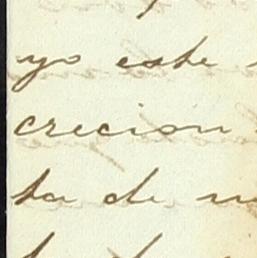 yo este
crecion
ta de